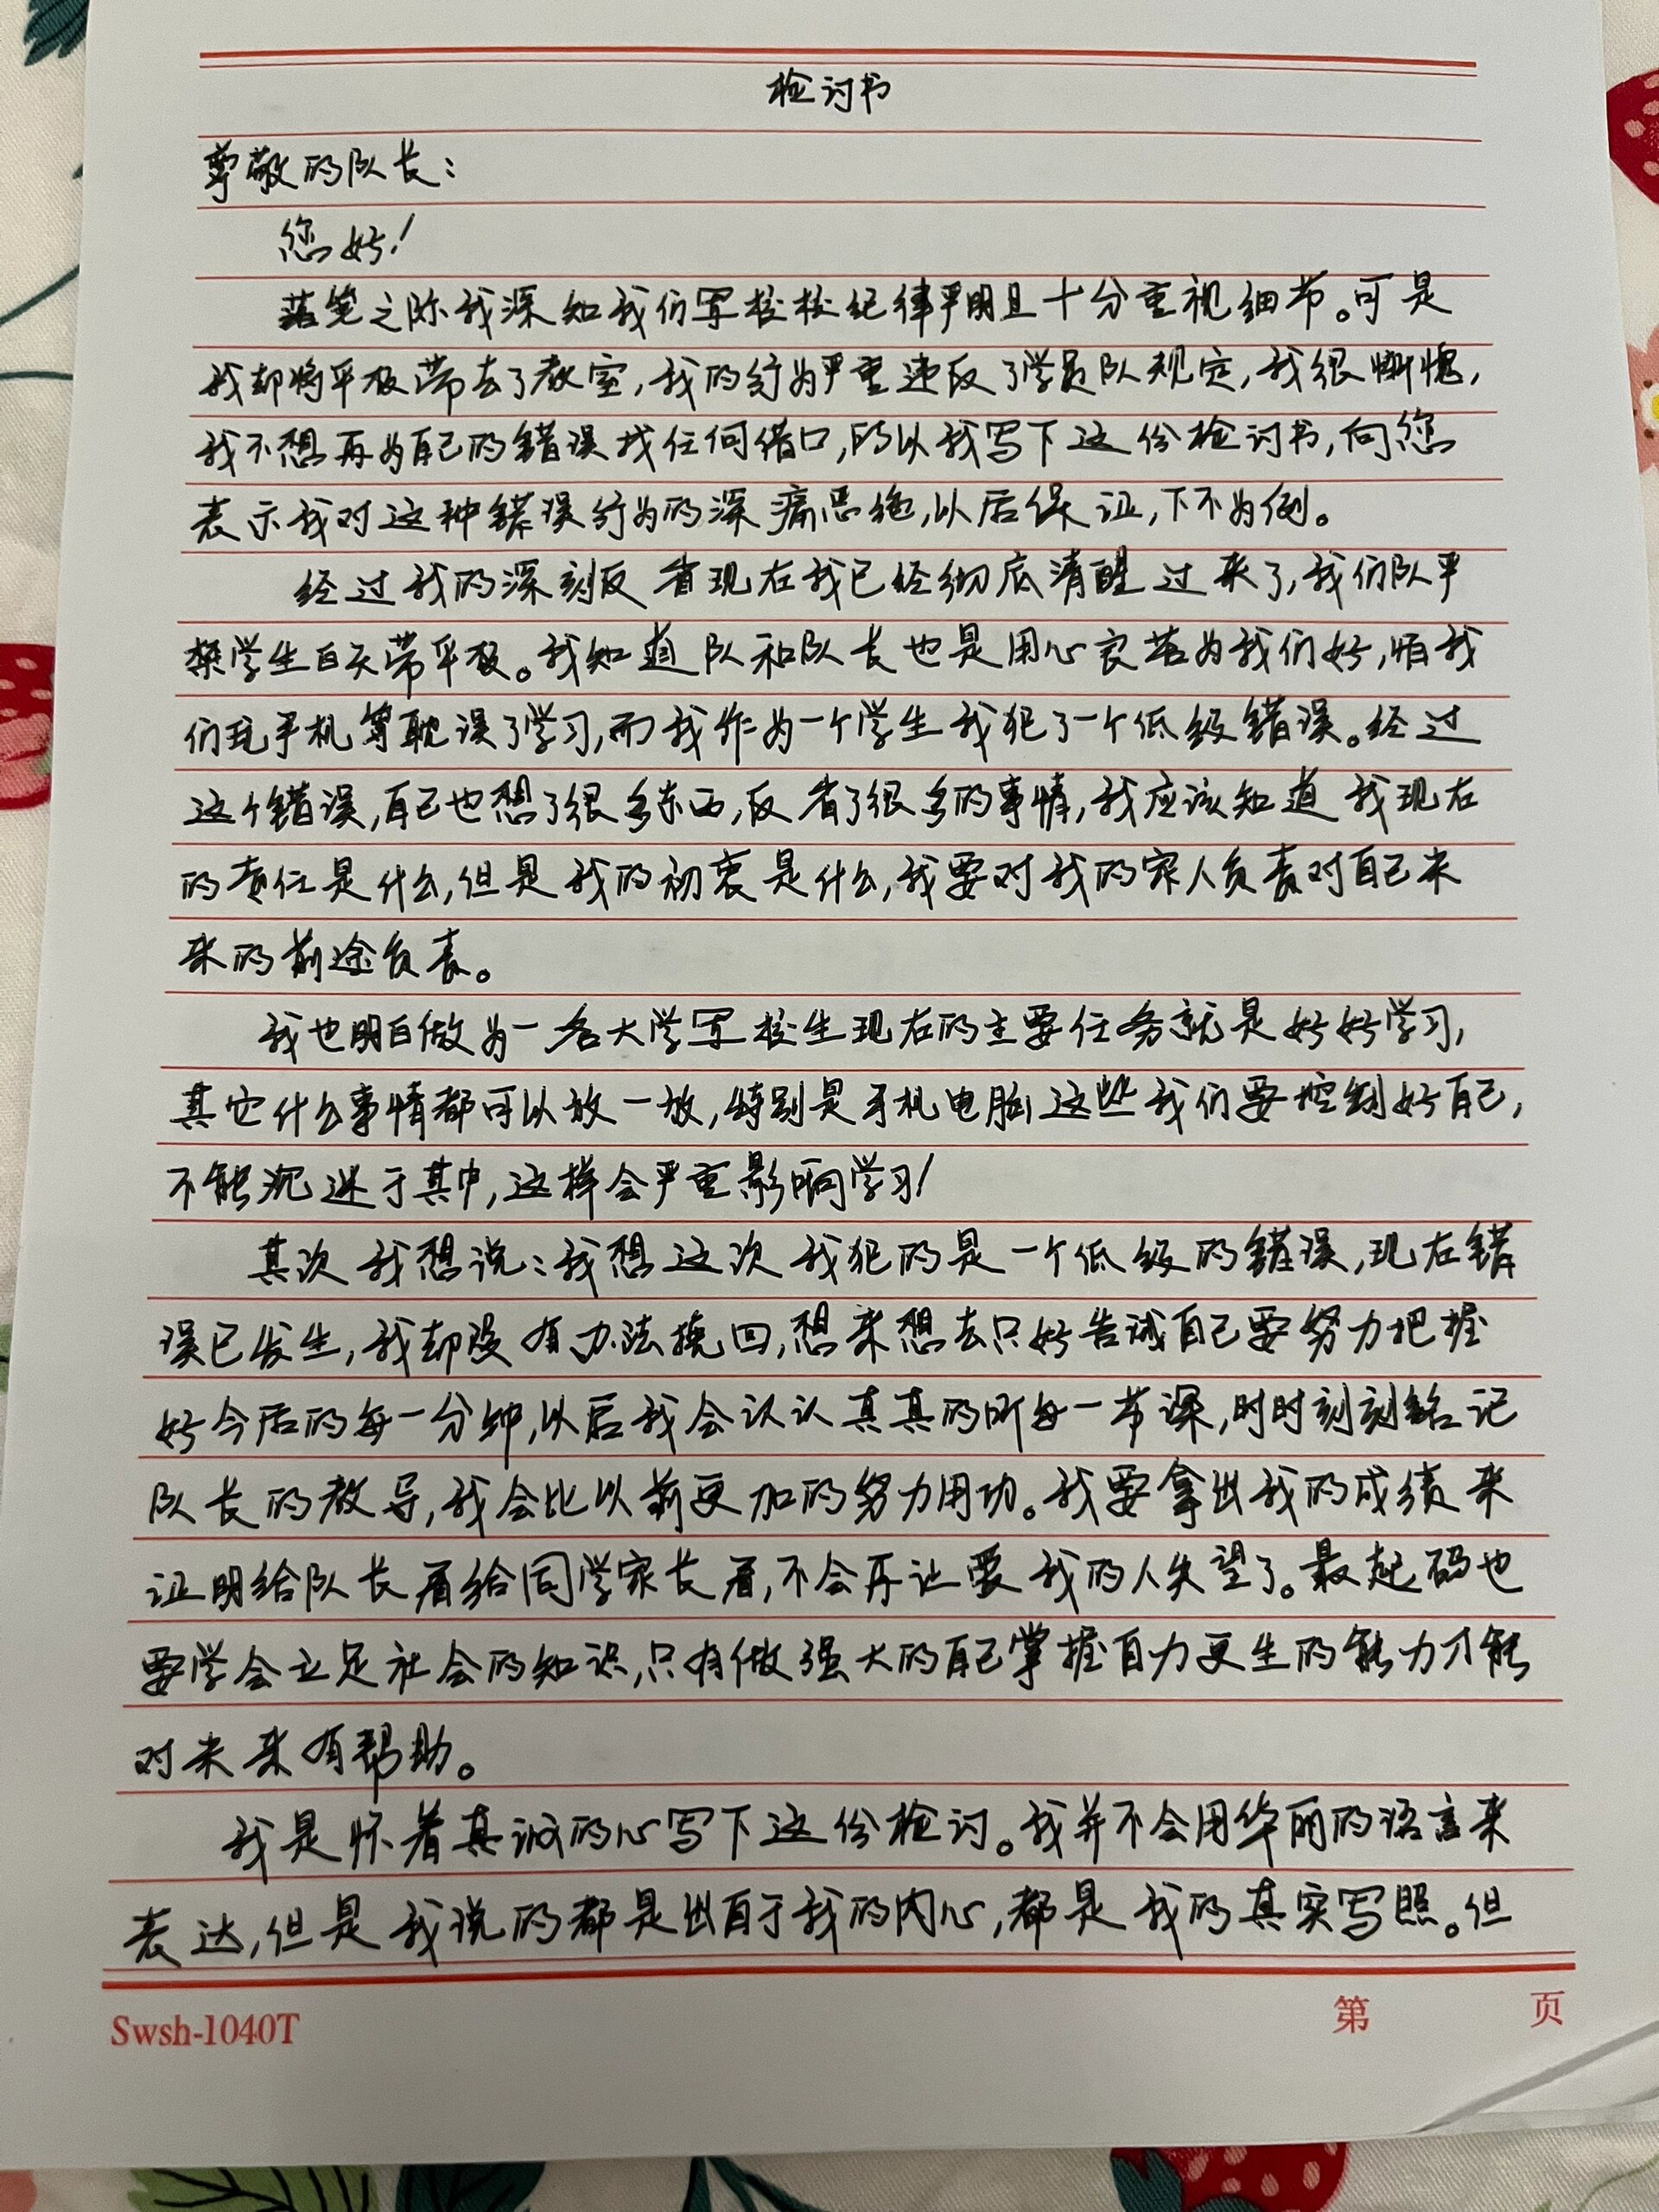 检讨书
尊敬的队长：
您好！
落笔之际我深知我们军校校纪律严明且十分重视细节。可是
我却将平板带去了教室，我的行为严重违反了学员队规定，我很惭愧，
我不想再为自己的错误找任何借口，所以我写下这份检讨书，向您
表示我对这种错误行为的深痛恶绝，以后保证，下不为例。
经过我的深刻反省现在我已经彻底清醒过来了，我们队严
禁学生白天带平板。我知道队和队长也是用心良苦为我们好，怕我
们玩手机等耽误了学习，而我作为一个学生我犯了一个低级错误。经过
这个错误，自己也想了很多东西，反省了很多的事情，我应该知道我现在
的责任是什么，但是我的初衷是什么，我要对我的家人负责对自己未
来的前途负责。
我也明白做为一名大学军校生现在的主要任务就是好好学习，
其它什么事情都可以放一放，特别是手机电脑这些我们要控制好自己，
不能沉迷于其中，这样会严重影响学习！
其次我想说：我想这次我犯的是一个低级的错误，现在错
误已发生，我却没有办法挽回，想来想去只好告诫自己要努力把握
好今后的每一分钟，以后我会认认真真的听每一节课，时时刻刻铭记
队长的教导，我会比以前更加的努力用功。我要拿出我的成绩来
证明给队长看给同学家长看，不会再让要我的人失望了。最起码也
要学会立足社会的知识，只有做强大的自己掌握自力更生的能力才能
对未来有帮助。
我是怀着真诚的心写下这份检讨。我并不会用华丽的语言来
表达，但是我说的都是出自于我的内心，都是我的真实写照。但
Swsh-1040T
第 页